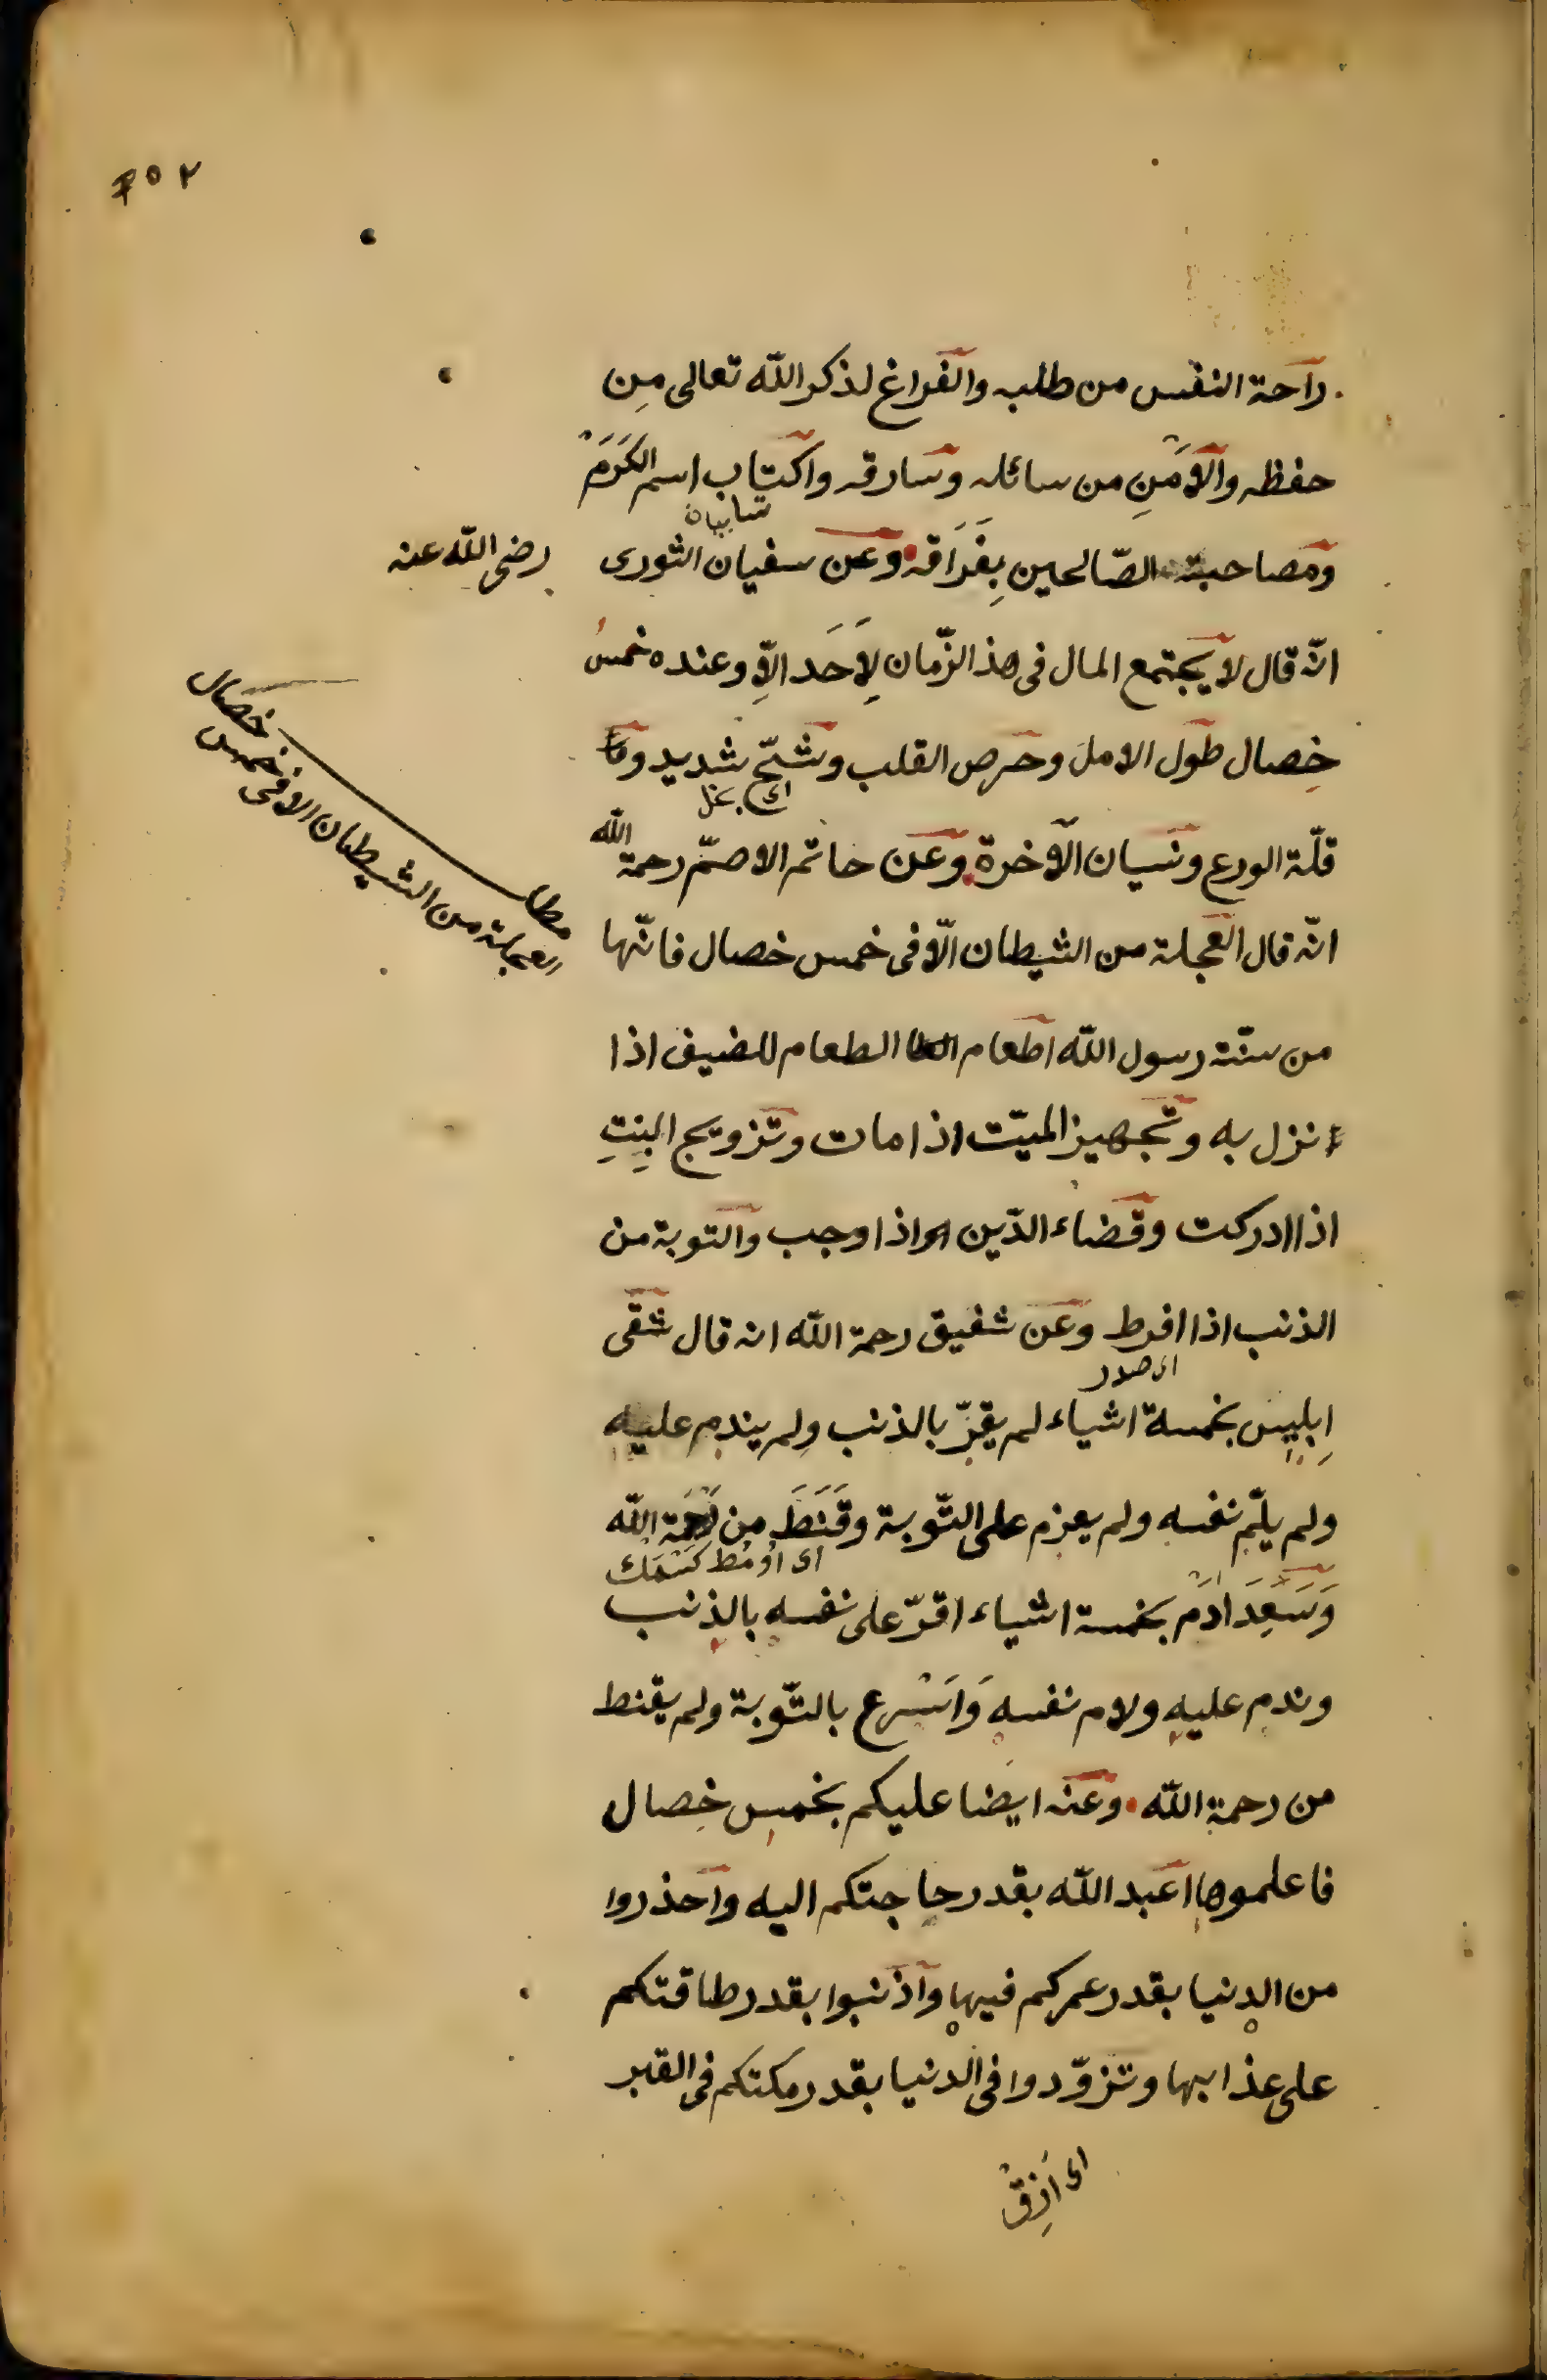 راحة النفس من طلبه والفراغ لذكر الله تعالى مِن
حفظه والاَمنِ من سائله وسارقه واكتاب اسم الكَرَمْ
ومصاحبة الصّالحين بِفَرَاقه وعن سفيان الثورى رضى الله عنه
انّه قال لا يجتمع المال فى هذ الزّمان لِاَحَد الاِّ وعنده خمسُ
خِصال طول الامل وحرص القلب وشحّ شديد
اى بخل
قلّة الورع ونسيان الآخرة وعن حاتم الاصمّ رحمة الله
انّه قال العجلة من الشيطان الّا فى خمس خصال فانّها
العجلة من الشيطان الا فى خمس خصال
من سنّة رسول الله اطعام الطعام للضيف اذا
نزل به وتجهيز الميّت اذا مات وتزويج البِنتِ
اذا ادركت وقضاء الدّين اذا وجب والتوبة من
الذنب اذا افرط وعن شفيق رحمة الله انه قال شقى
اى صدر
اِبلِيس بخمسة اشياء لم يقرّ بالذنب ولم يندم عليه
ولم يلّم نفسه ولم يعزم على التّوبة وقَنَطَ من رَحْمَة الله
وَسَعِدَ ادَمَ بخمسة اشياء اقرّ على نفسه بالذنب
وندم عليه ولام نفسه وَاَسْرع بالتّوبة ولم يقنط
من رحمة الله وعنه ايضا عليكم بخمس خِصال
فاعلموها اعبد الله بقدر حاجتكم اليه واحذروا
من الدنيا بقدر عمركم فيها واذنبوا بقدر طاقتكم
على عذابها وتزوّدوا فى الدنيا بقدر مكتكم فى القبر